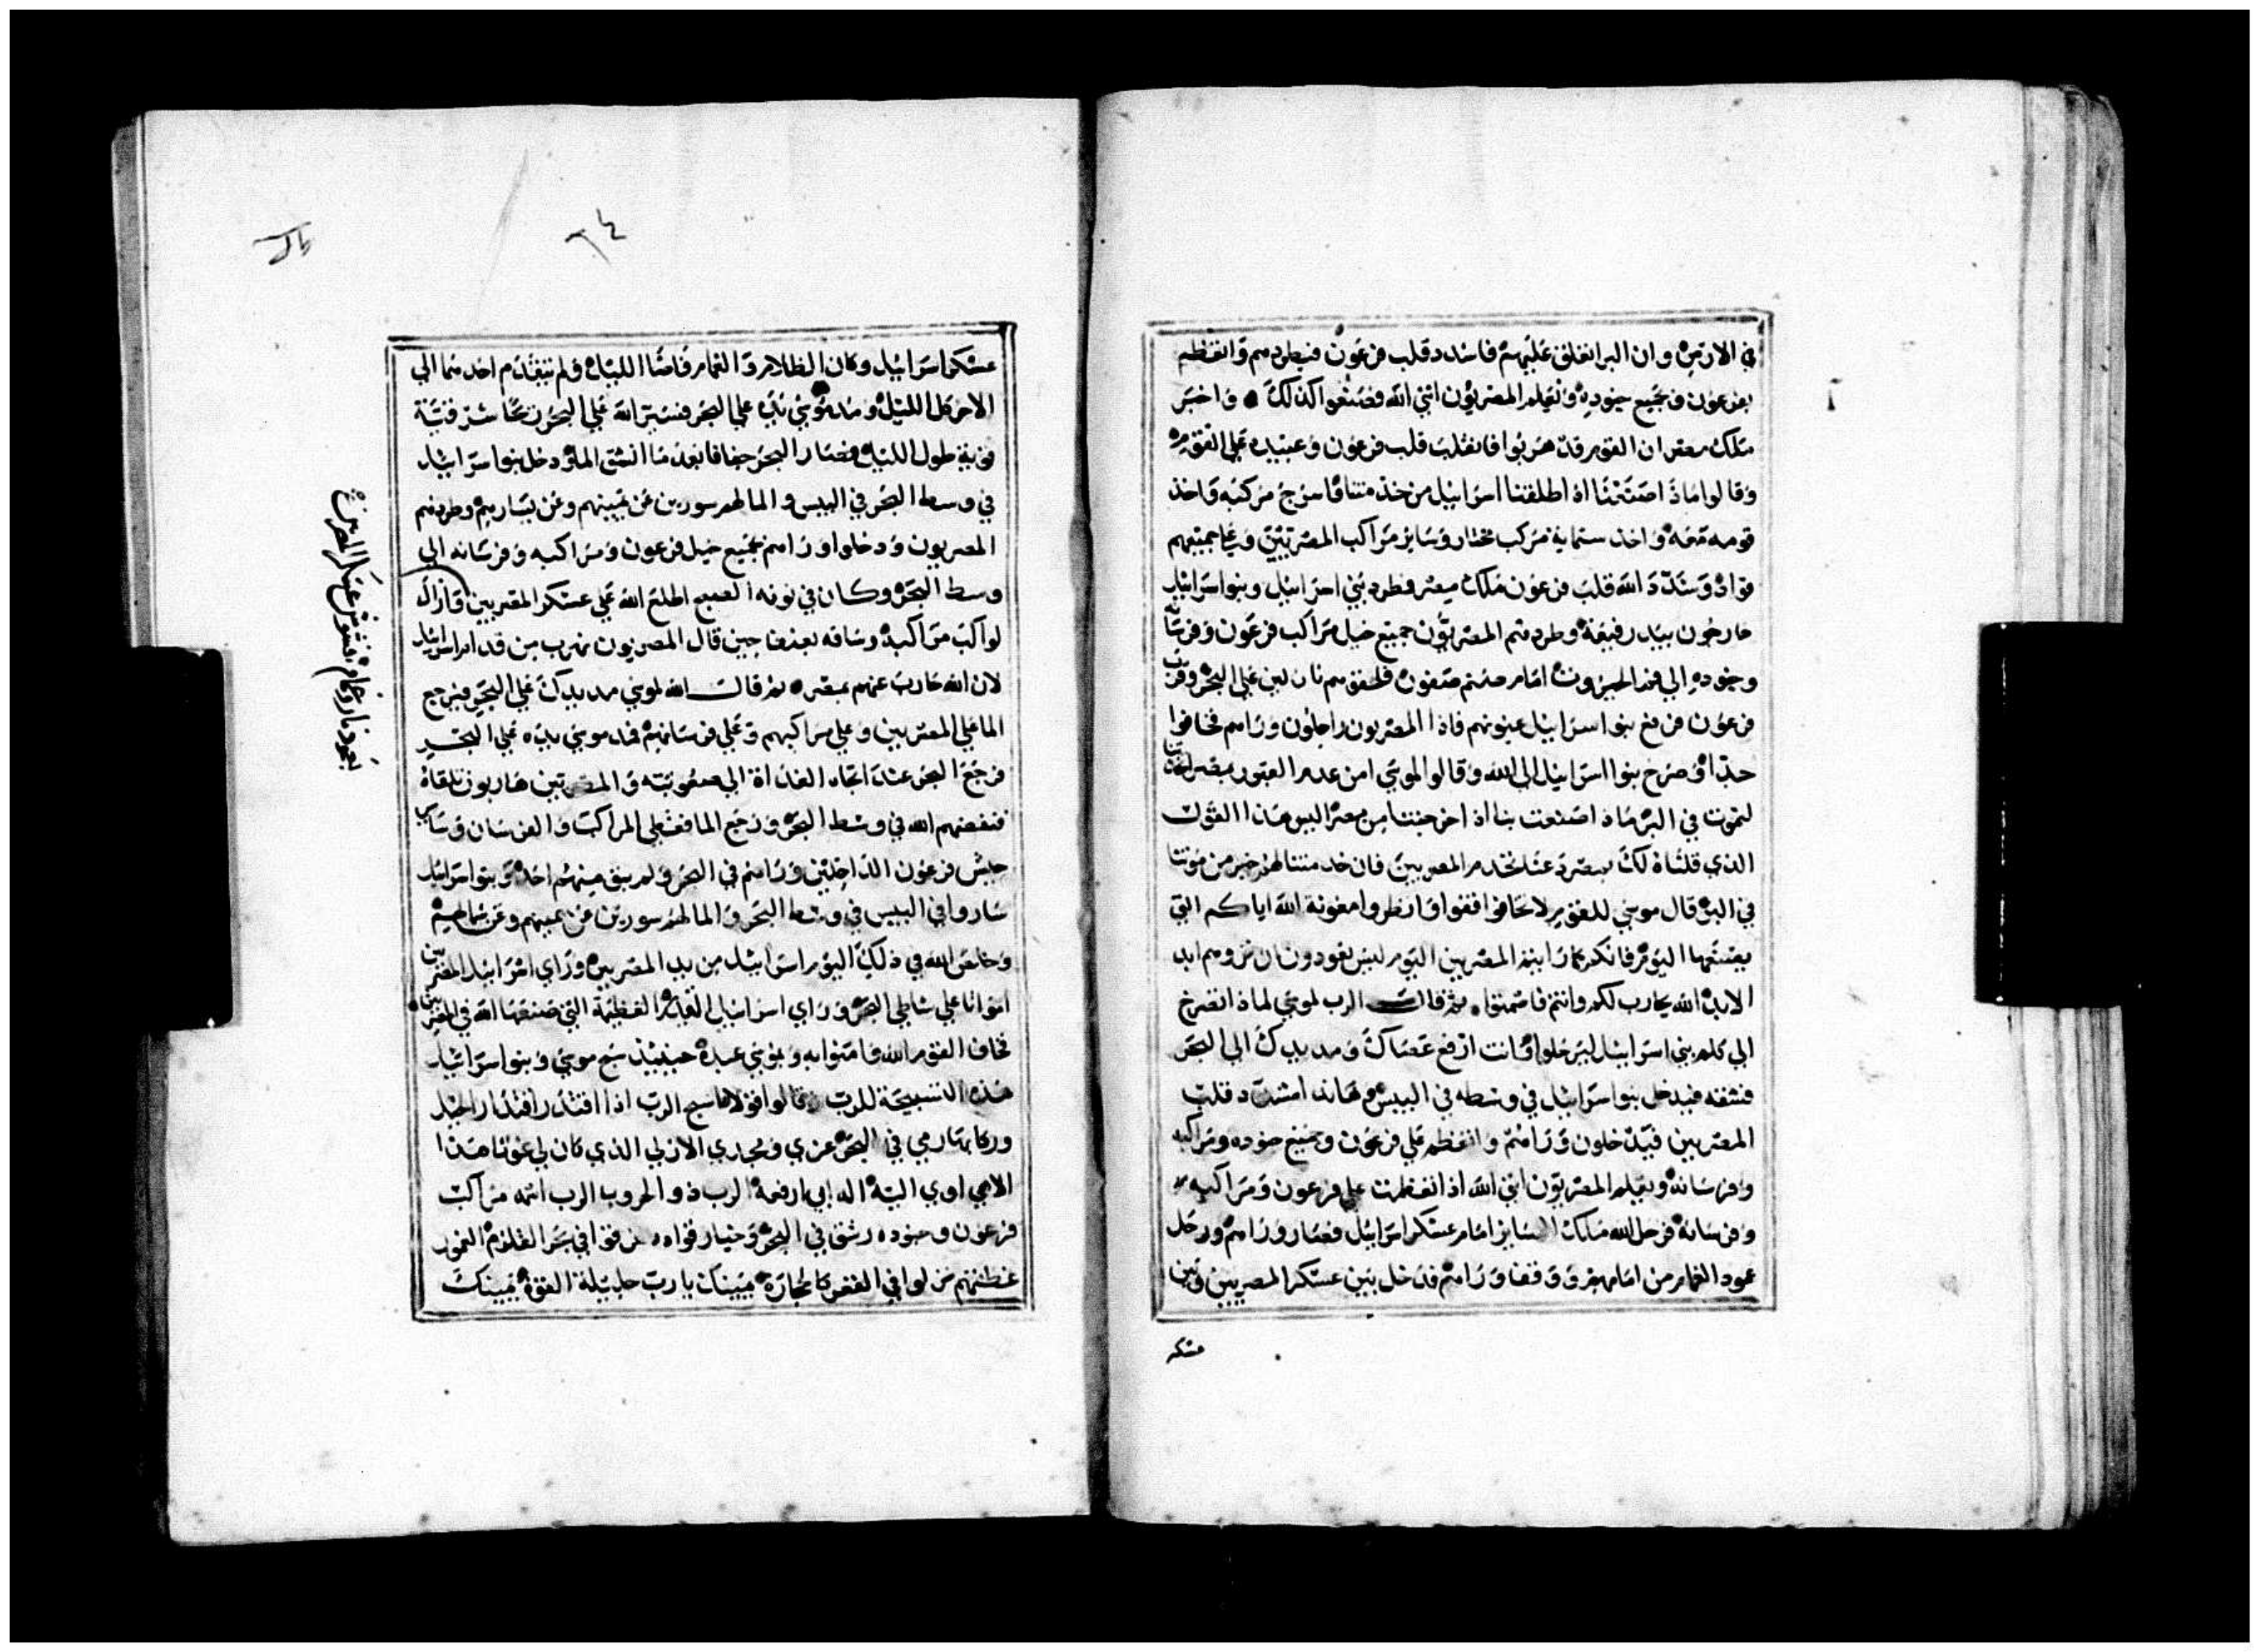 في الارض وان البر انغلق عليهم فاشدد قلب فرعون فيطردهم واتعظم
بفرعون وبجميع جنوده وتعلم المصريون انني الله فصنعوا كذلك واخبر
ملك مصر ان القوم قد هربوا فانقلب قلب فرعون وعبيده علي القوم
وقالوا ماذا صنعنا اذ اطلقنا اسرائيل من خدمتنا فاسرج مركبه واخذ
قومه معه واخذ ستماية مركب مختار وساير مراكب المصريين وعلي جميعهم
قواد وشدد الله قلب فرعون ملك مصر فطرد بني اسرائيل وبنوا اسرائيل
خارجون بيد رفيعة وطردهم المصريون جميع خيل مراكب فرعون وفرسانه
وجنوده الي فم الحيروت امام صنم صفون فلحقوهم نازلين علي البحر وقرب
فرعون فرفع بنوا اسرائيل عيونهم فاذا المصريون راحلون وراهم فخافوا
جدا وصرخ بنوا اسرائيل الي الله وقالوا لموسي امن عدم القبور بمصر اخذتنا
لنموت في البر ماذا صنعت بنا اذ اخرجتنا من مصر اليس هذا القول
الذي قلناه لك بمصر دعنا نخدم المصريين فان خدمتنا لهم خير من موتنا
في البر قال موسي للقوم لا تخافوا قفوا وانظروا معونة الله اياكم التي
يصنعها اليوم فانكم كما رايتم المصريين اليوم ليس تعودون ان تروهم ابد
الابد الله يحارب لكم وانتم فاصمتوا ثم قال الرب لموسي لماذا تصرخ
الي كلم بني اسرائيل ليرحلوا وانت ارفع عصاك ومد يدك الي البحر
فشقه فيدخل بنوا اسرائيل في وسطه في اليبس وهانذا مشدد قلب
المصريين فيدخلون وراهم واتعظم علي فرعون وجميع جنوده ومراكبه
وفرسانه ويعلم المصريون انني الله اذا تعظمت علي فرعون ومراكبه
وفرسانه فرحل الله ملاك الساير امام عسكر اسرائيل فصار وراهم ورحل
عمود الغمام من امامهم ووقف وراهم فدخل بين عسكر المصريين وبين
عسكر
٦٤
عسكر اسرائيل وكان الظلام والغمام فاضا الليل ولم يتقدم احد منهما الي
الاخر كل الليل ومد موسي يده علي البحر فسير الله علي البحر ريحا شرقية
قوية طول الليل فصار البحر جفافا بعد ما انشق الما ودخل بنوا اسرائيل
في وسط البحر في اليبس والما لهم سورين عن يمينهم وعن يسارهم وطردهم
المصريون ودخلوا وراهم بجميع خيل فرعون ومراكبه وفرسانه الي
وسط البحر وكان في نوبة الصبح اطلع الله علي عسكر المصريين فازال
بعمود نار وغمام فشوش عسكر المصريين
لواكب مراكبه وساقه بعد ما حين قال المصريون نهرب من قدام اسرائيل
لان الله حارب عنهم بمصر ثم قال الله لموسي مد يدك علي البحر فيرجع
الما علي المصريين وعلي مراكبهم وعلي فرسانهم فمد موسي يده علي البحر
فرجع البحر عند اتجاه الغداة الي صعوبته والمصريين هاربون تلقاه
فنفضهم الله في وسط البحر ورجع الما فغطي المراكب والفرسان وساير
جيش فرعون الداخلين وراهم في البحر ولم يبق منهم احد وبنوا اسرائيل
ساروا في اليبس في وسط البحر والما لهم سورين عن يمينهم وعن شمالهم
وخلص الله في ذلك اليوم اسرائيل من يد المصريين وراي اسرائيل المصريين
امواتا علي شاطي البحر وراي اسرائيل العظيمة التي صنعها الله في المصريين
فخاف القوم الله وامنوا به وبموسي عبده حينيذ سبح موسي وبنوا اسرائيل
هذه التسبيحة للرب وقالوا قولا نسبح الرب اذ اقتدر اقتدارا الخيل
وركابها رمي في البحر عزي ومجدي الازلي الذي كان لي غوثا هذا
الاهي اوي اليه اله ابي ارفعه الرب ذو الحروب الرب اسمه مراكب
فرعون وجنوده رشق في البحر وخيار قواده غرقوا في بحر القلزم الغمور
غطتهم نزلوا في القعر كالحجارة يمينك يا رب جليلة القوة يمينك